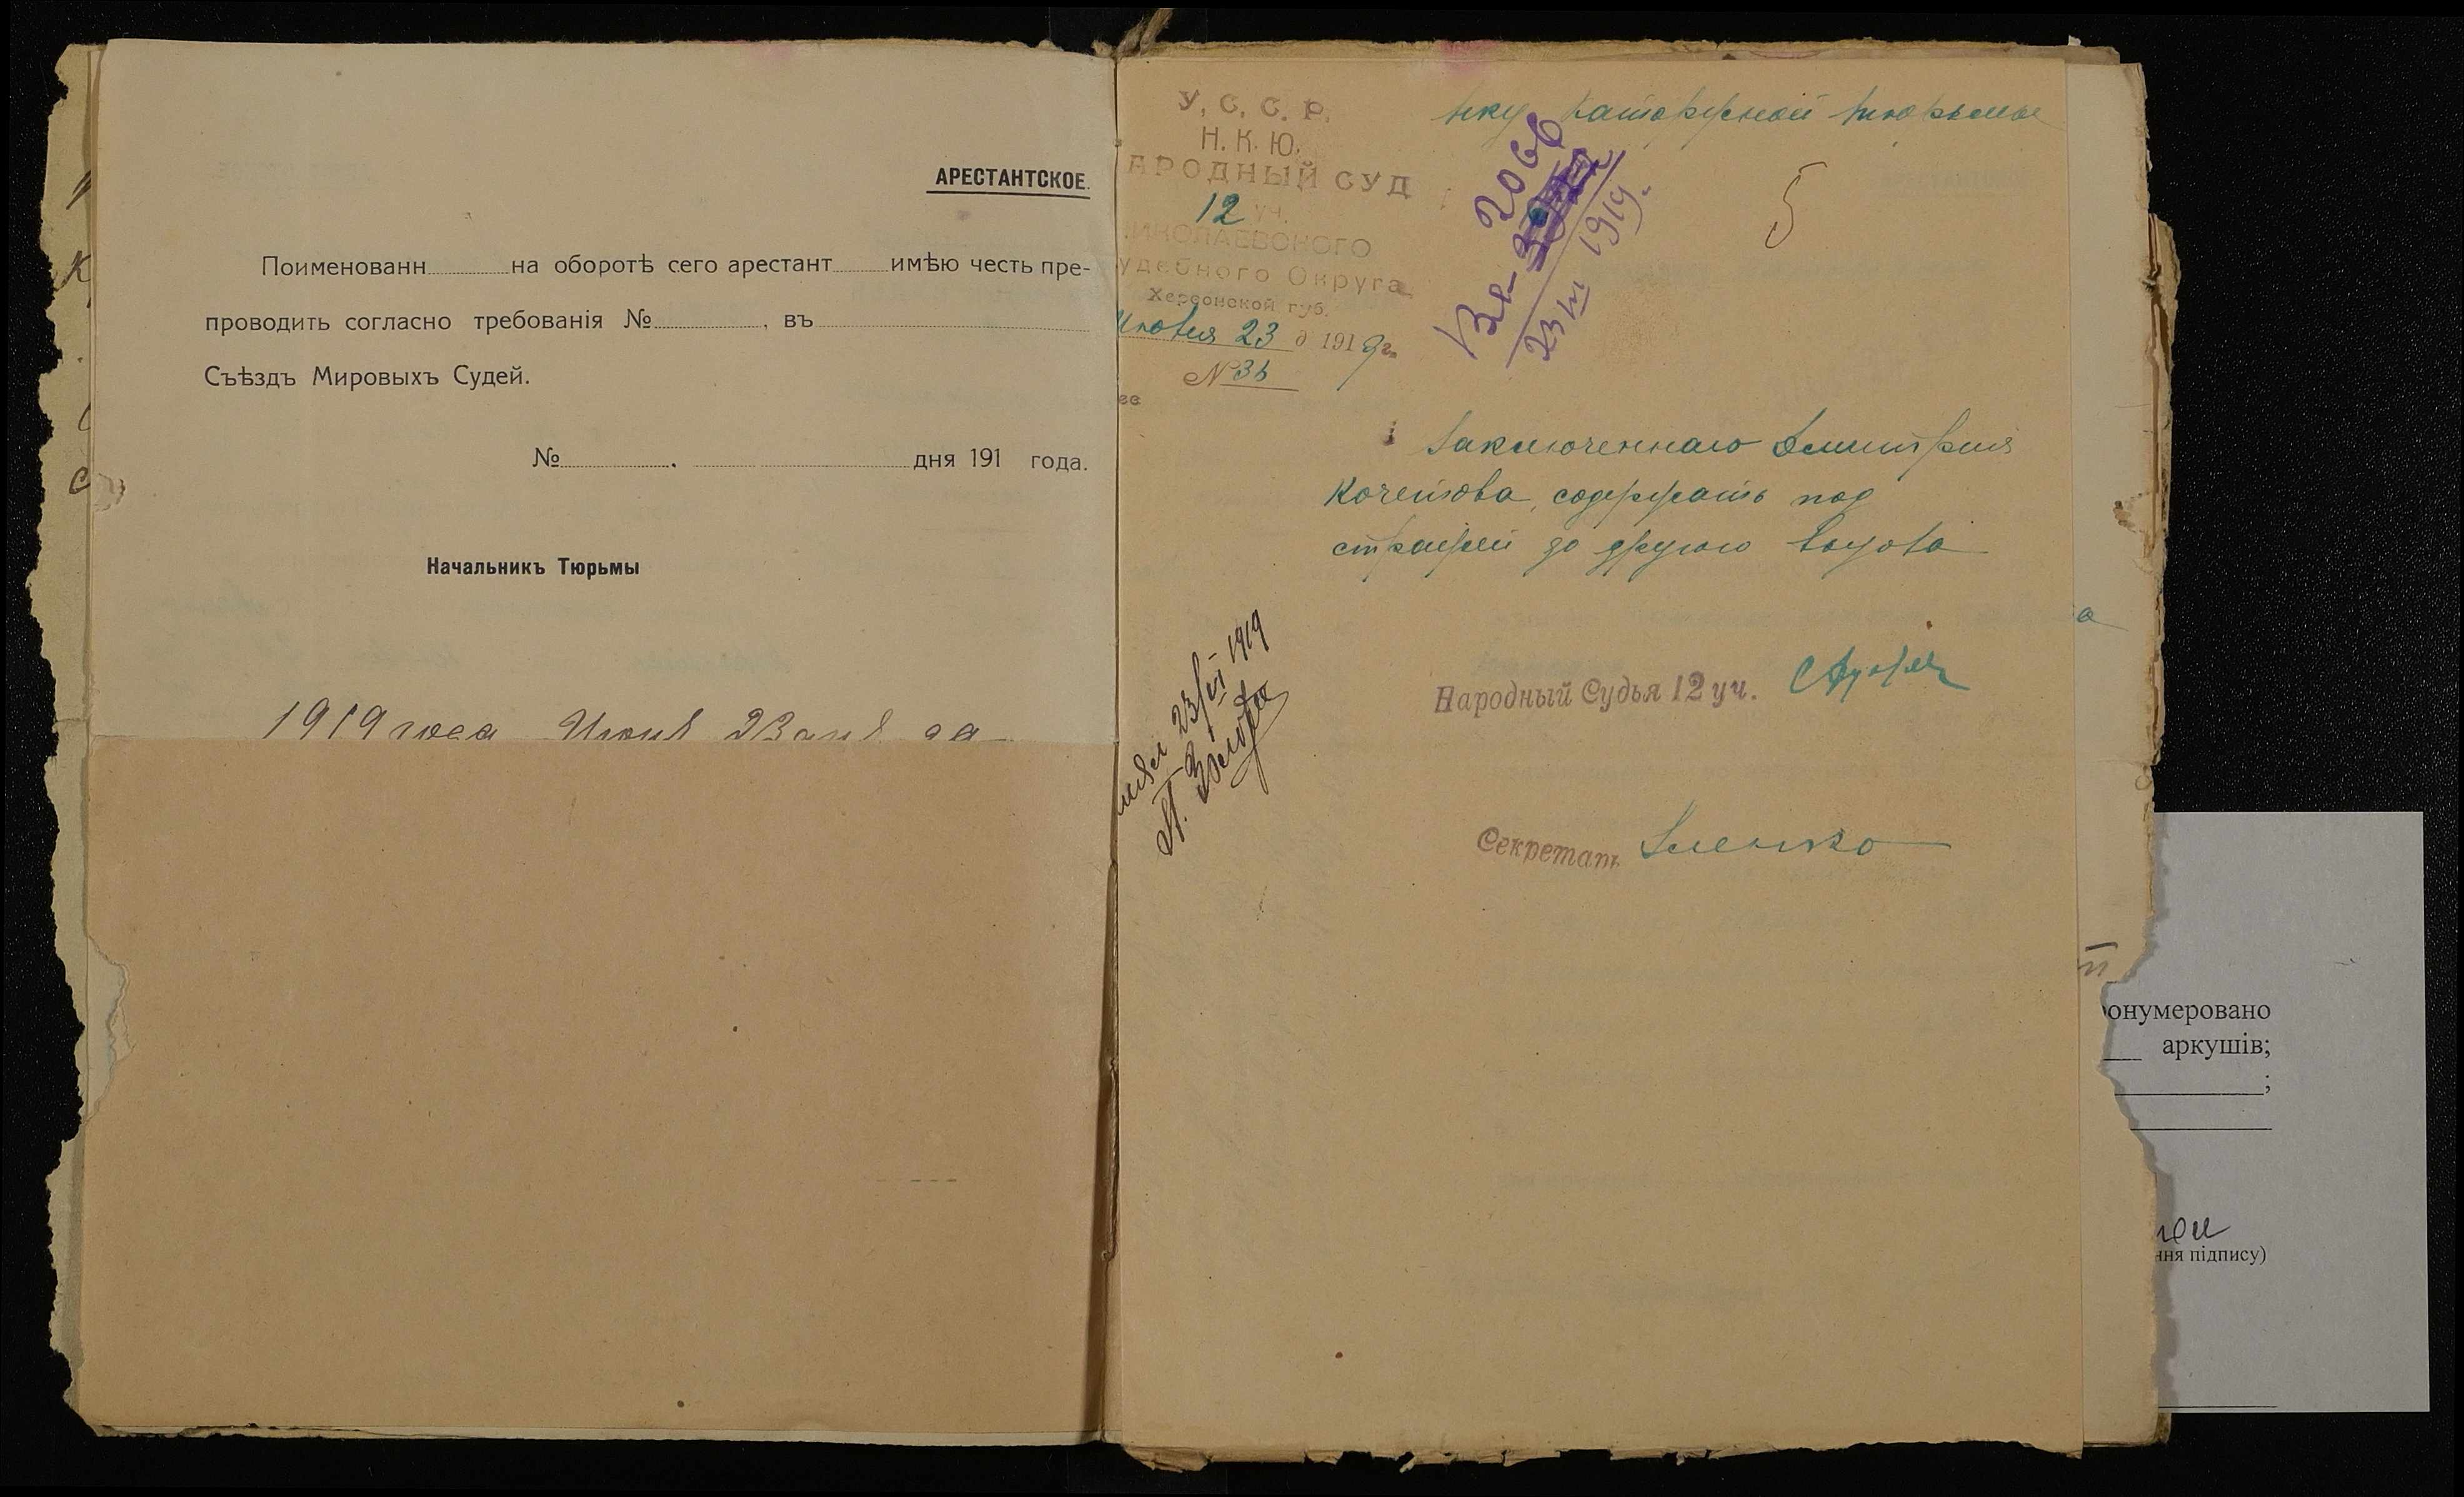 АРЕСТАНТСКОЕ.
Поименованн на оборотѣ сего арестант имѣю честь пре-
проводить согласно требованія № , въ
Съѣздъ Мировыхъ Судей.
№ . дня 191 года.
Начальникъ Тюрьмы
1919 года Июня 23 дня
У. С. С. Р.
Н. К. Ю.
АРОДНЫЙ СУД
12 уч.
ИКОЛАЕВСКОГО
удебного Округа
Херсонской губ.
Июня 23 д 1919 г.
№ 36
нку Каторжной тюрьмы
2066
Вх-
23/VI 1919.
5
Заключеннаго Дмитрия
Кочетова, содержать под
стражей до другого
Народный Судья 12 уч.
23/VI 1919
Секретарь
а
онумеровано
аркушів;
;
ння підпису)